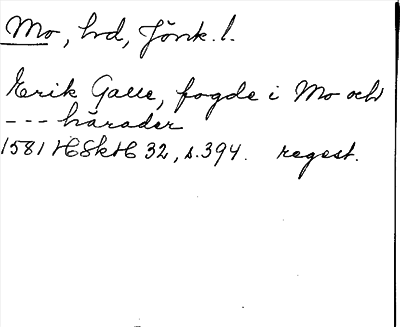 Mo, hd, Jönk. l.
Erik Galle, fogde i Mo och
--- härader
1581 HSkH 32, s. 394. regest.